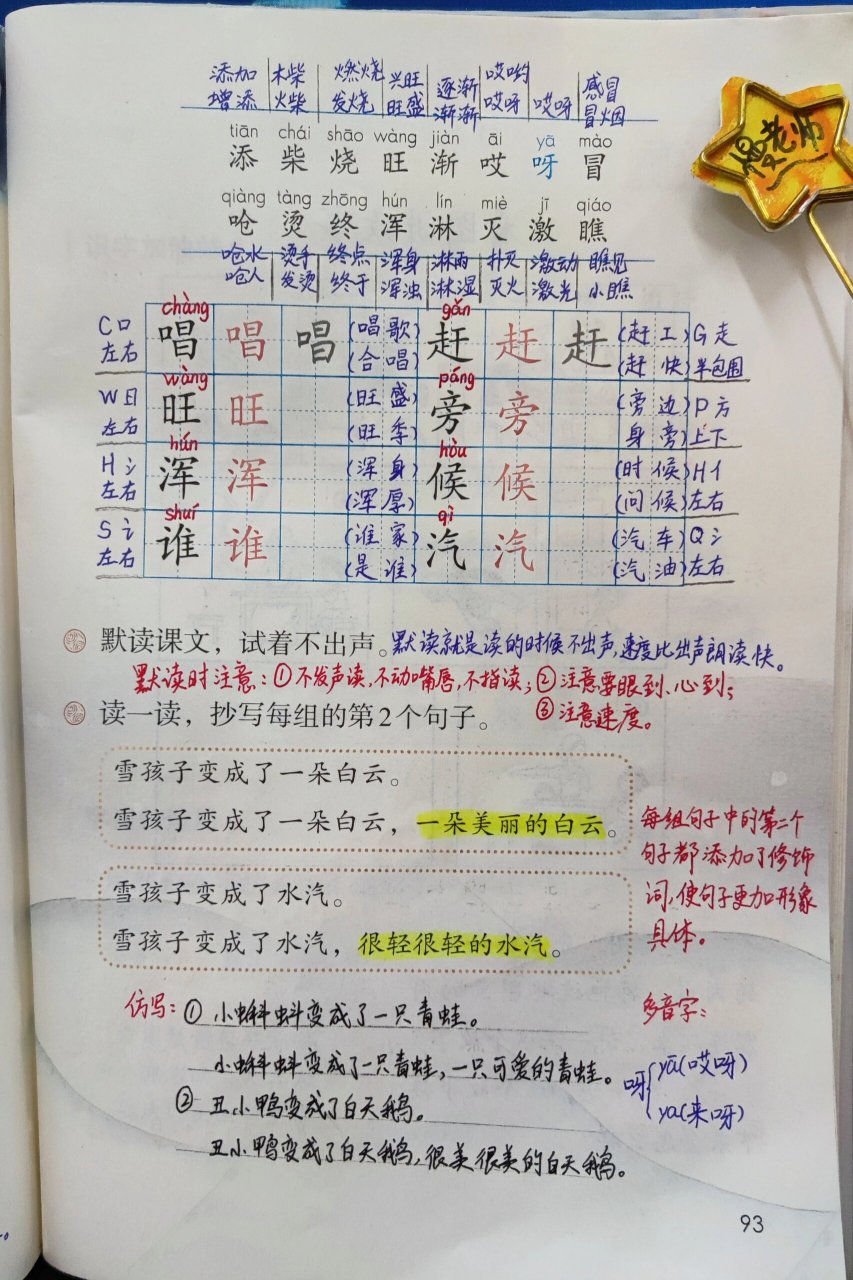 添加 木柴 燃烧 兴旺 逐渐 哎哟 感冒
增添 火柴 发烧 旺盛 渐渐 哎呀 哎呀 冒烟
tiān chái shāo wàng jiàn āi yā mào
添 柴 烧 旺 渐 哎 呀 冒
qiàng tàng zhōng hún lín miè jī qiáo
呛 烫 终 浑 淋 灭 激 瞧
呛水 烫手 终点 浑身 淋雨 扑灭 激动 瞧见
呛人 发烫 终于 浑浊 淋湿 灭火 激光 小瞧
慢老师
chàng gǎn
C口 唱 唱 唱 (唱歌 赶 赶 赶 (赶工) G走
左右 (合唱) (赶快) 半包围
wàng páng
W日 旺 旺 (旺盛 旁 旁 (旁边) P方
左右 (旺季) 身旁) 上下
hún hòu
H氵 浑 浑 (浑身 候 候 (时候) H亻
左右 (浑厚) (问候) 左右
shuí qì
S讠 谁 谁 (谁家 汽 汽 (汽车) Q氵
左右 (是谁) (汽油) 左右
默读课文，试着不出声。默读就是读的时候不出声,速度比出声朗读快。
默读时注意:①不发声读,不动嘴唇,不指读;②注意要眼到、心到;
③注意速度。
读一读，抄写每组的第2个句子。
雪孩子变成了一朵白云。
雪孩子变成了一朵白云，一朵美丽的白云。
雪孩子变成了水汽。
雪孩子变成了水汽，很轻很轻的水汽。
每组句子中的第二个
句子都添加了修饰
词,使句子更加形象
具体。
仿写:①小蝌蚪变成了一只青蛙。
小蝌蚪变成了一只青蛙,一只可爱的青蛙。
②丑小鸭变成了白天鹅。
丑小鸭变成了白天鹅,很美很美的白天鹅。
多音字:
呀 yā(哎呀)
ya(来呀)
93